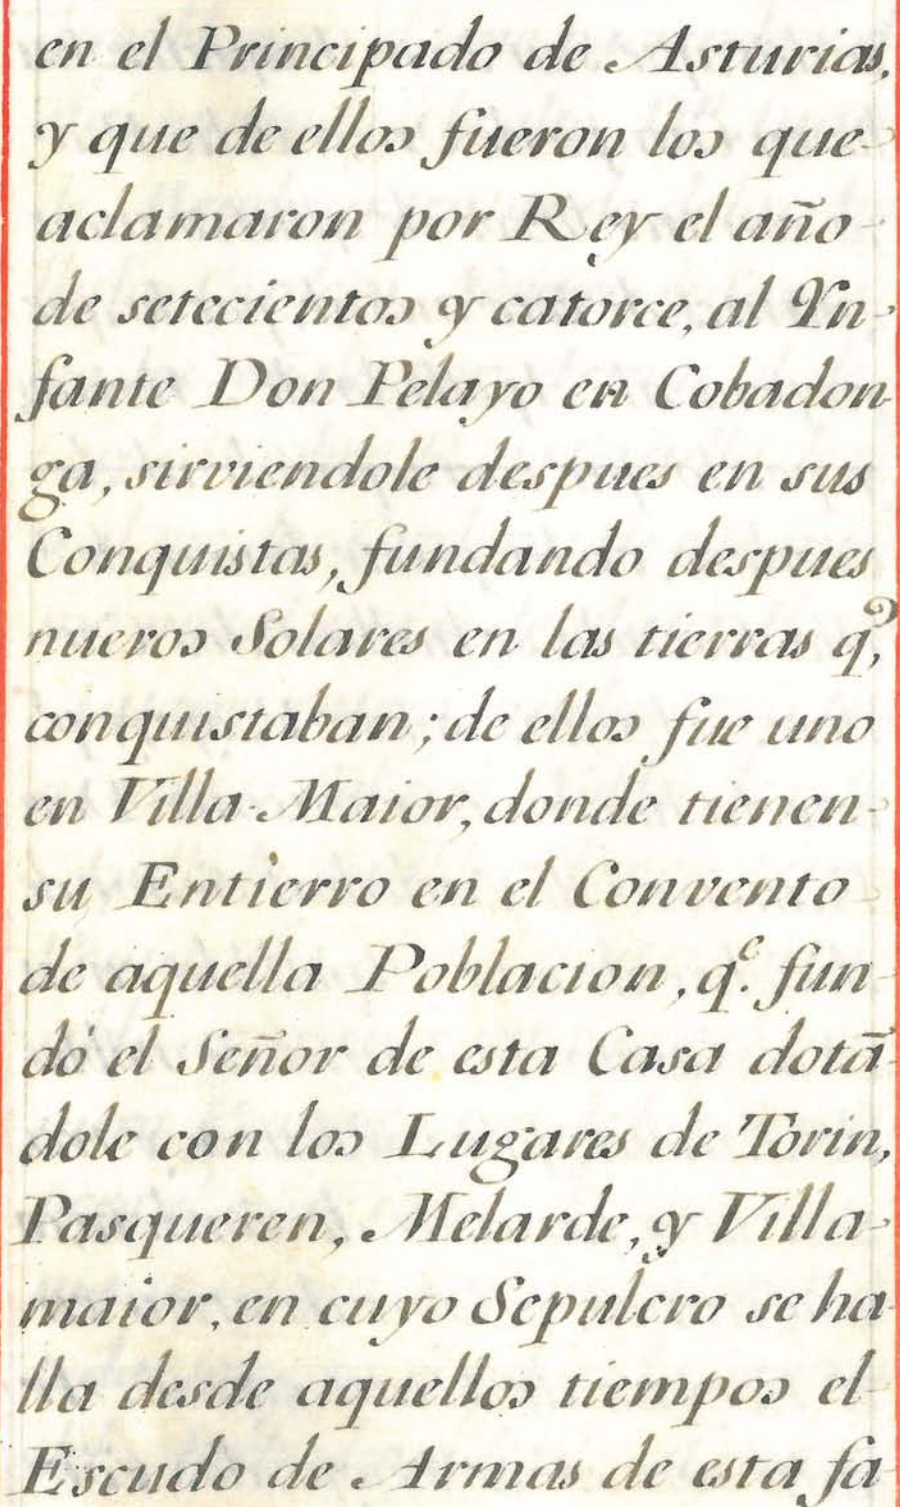 en el Principado de Asturias,
y que de ellos fueron los que-
aclamaron por Rey el año-
de setecientos y catorce, al Yn-
fante Don Pelayo en Cobadon-
ga, sirviendole despues en sus
Conquistas, fundando despues
nuevos Solares en las tierras q,
conquistaban; de ellos fue uno
en Villa-Maior, donde tienen-
su Entierro en el Convento-
de aquella Poblacion, qe. fun-
dó el Señor de esta Casa dotã-
dole con los Lugares de Torin,
Pasqueren, Melarde, y Villa-
maior, en cuyo Sepulcro se ha-
lla desde aquellos tiempos el-
Escudo de Armas de esta fa-